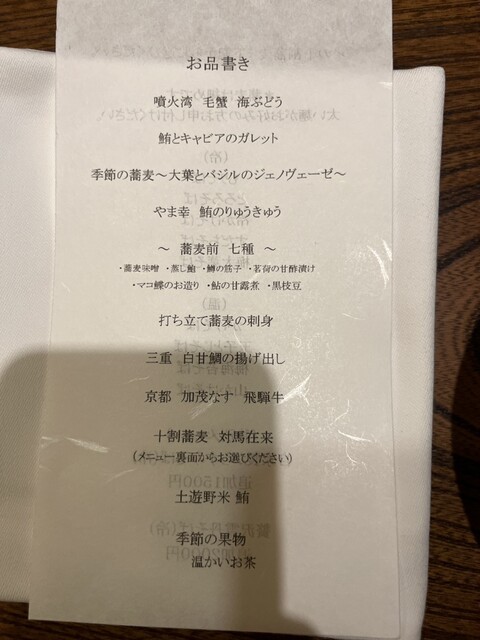 お品書き
噴火湾 毛蟹 海ぶどう
鮪とキャビアのガレット
季節の蕎麦～大葉とバジルのジェノヴェーゼ～
やま幸 鮪のりゅうきゅう
～ 蕎麦前 七種 ～
・蕎麦味噌 ・蒸し鮑 ・鱒の筋子 ・茗荷の甘酢漬け
・マコ鰈のお造り ・鮎の甘露煮 ・黒枝豆
打ち立て蕎麦の刺身
三重 白甘鯛の揚げ出し
京都 加茂なす 飛騨牛
十割蕎麦 対馬在来
(メニュー裏面からお選びください)
土遊野米 鮪
季節の果物
温かいお茶